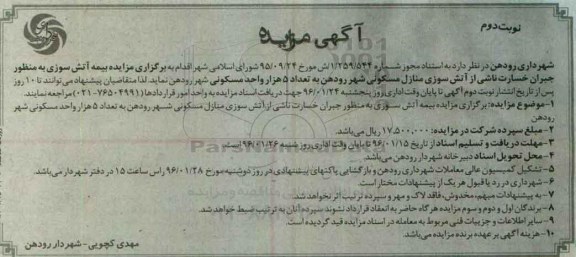 نوبت دوم
آگهی مزایده
شهرداری رودهن در نظر دارد به استناد مجوز شماره ۱/۲۵۹/۵۴۴/ش مورخ ۹۵/۰۹/۲۴ شورای اسلامی شهر اقدام به برگزاری مزایده بیمه آتش سوزی به منظور
جبران خسارت ناشی از آتش سوزی منازل مسکونی شهر رودهن به تعداد ۵ هزار واحد مسکونی شهر رودهن نماید. لذا متقاضیان پیشنهاد می‌توانند تا ۱۰ روز
پس از تاریخ انتشار نوبت دوم آگهی تا پایان وقت اداری روز پنجشنبه ۹۶/۰۱/۲۴ جهت دریافت اسناد مزایده به واحد امور قراردادها (۷۶۵۰۴۹۹۱-۰۲۱) مراجعه نمایند.
۱- موضوع مزایده: برگزاری مزایده بیمه آتش سوزی به منظور جبران خسارت ناشی از آتش سوزی منازل مسکونی شهر رودهن به تعداد ۵ هزار واحد مسکونی شهر
رودهن
۲- مبلغ سپرده شرکت در مزایده: ۱۷,۵۰۰,۰۰۰ ریال می‌باشد.
۳- مهلت دریافت و تسلیم اسناد از تاریخ ۹۶/۰۱/۱۵ تا پایان وقت اداری روز شنبه ۹۶/۰۱/۲۶ است.
۴- محل تحویل اسناد دبیرخانه شهرداری رودهن می‌باشد.
۵- تشکیل کمیسیون عالی معاملات شهرداری رودهن و بازگشایی پاکتهای پیشنهادی در روز دوشنبه مورخ ۹۶/۰۱/۲۸ راس ساعت ۱۵ در دفتر شهردار می‌باشد.
۶- شهرداری در رد یا قبول هر یک از پیشنهادات مختار است.
۷- به پیشنهادات مبهم، مخدوش، فاقد لاک و مهر و سپرده ترتیب اثر نخواهد شد.
۸- برندگان اول و دوم و سوم مزایده هرگاه حاضر به انعقاد قرارداد نشوند سپرده آنان به ترتیب ضبط خواهد شد.
۹- سایر اطلاعات و جزییات فنی مربوط به معامله در اسناد مزایده قید گردیده است.
۱۰- هزینه آگهی بر عهده برنده مزایده می‌باشد.
مهدی کچویی- شهردار رودهن